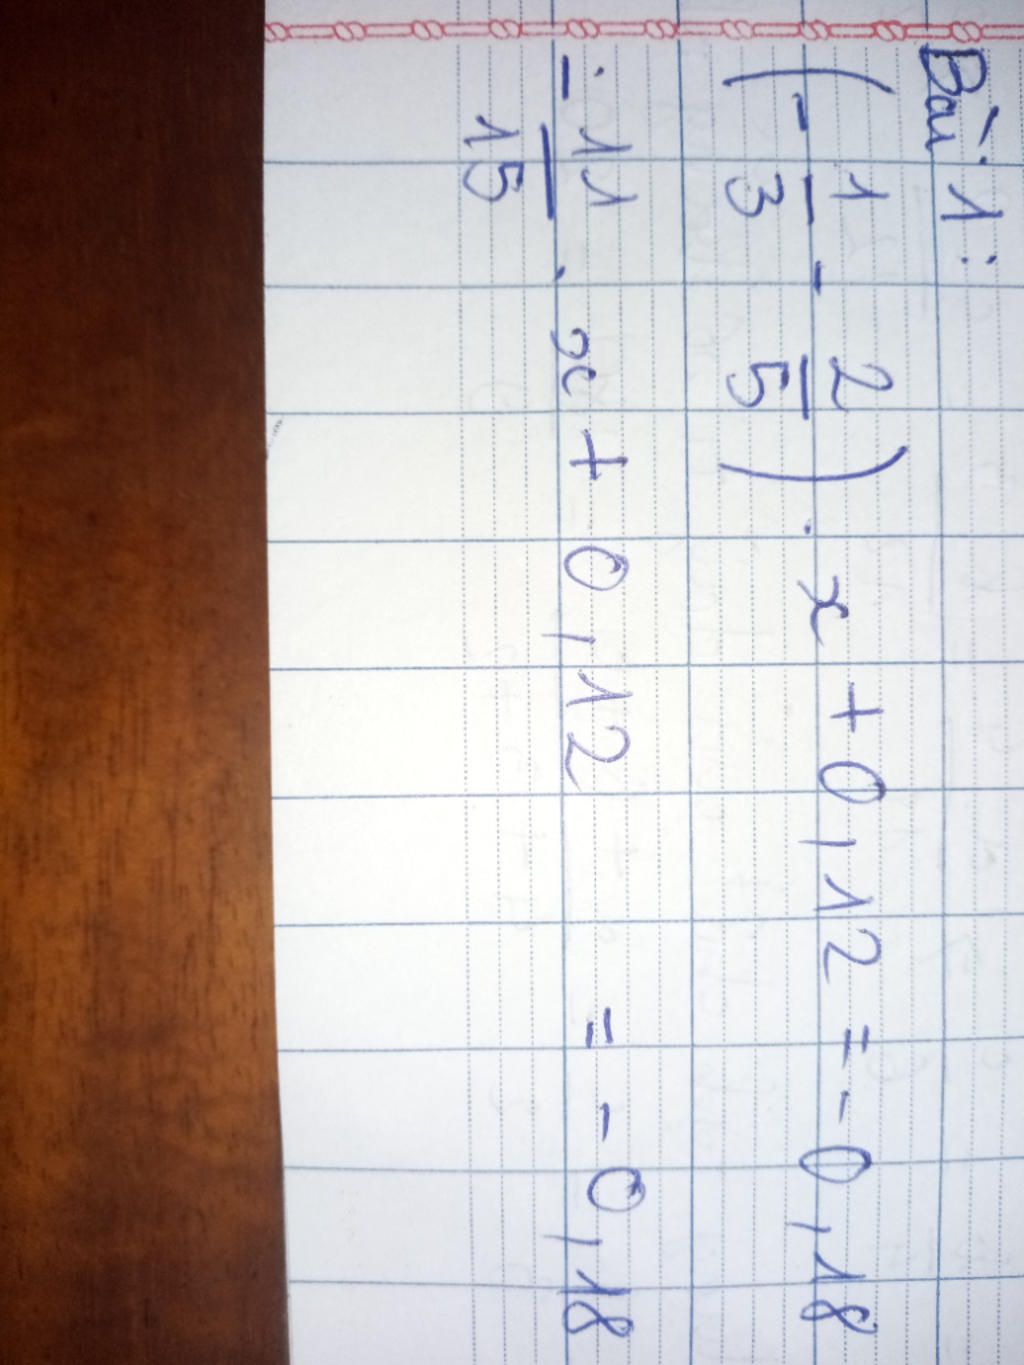 Bài 1:
(- 1/3 - 2/5) . x + 0,12 = - 0,18
- 11/15 . x + 0,12 = - 0,18